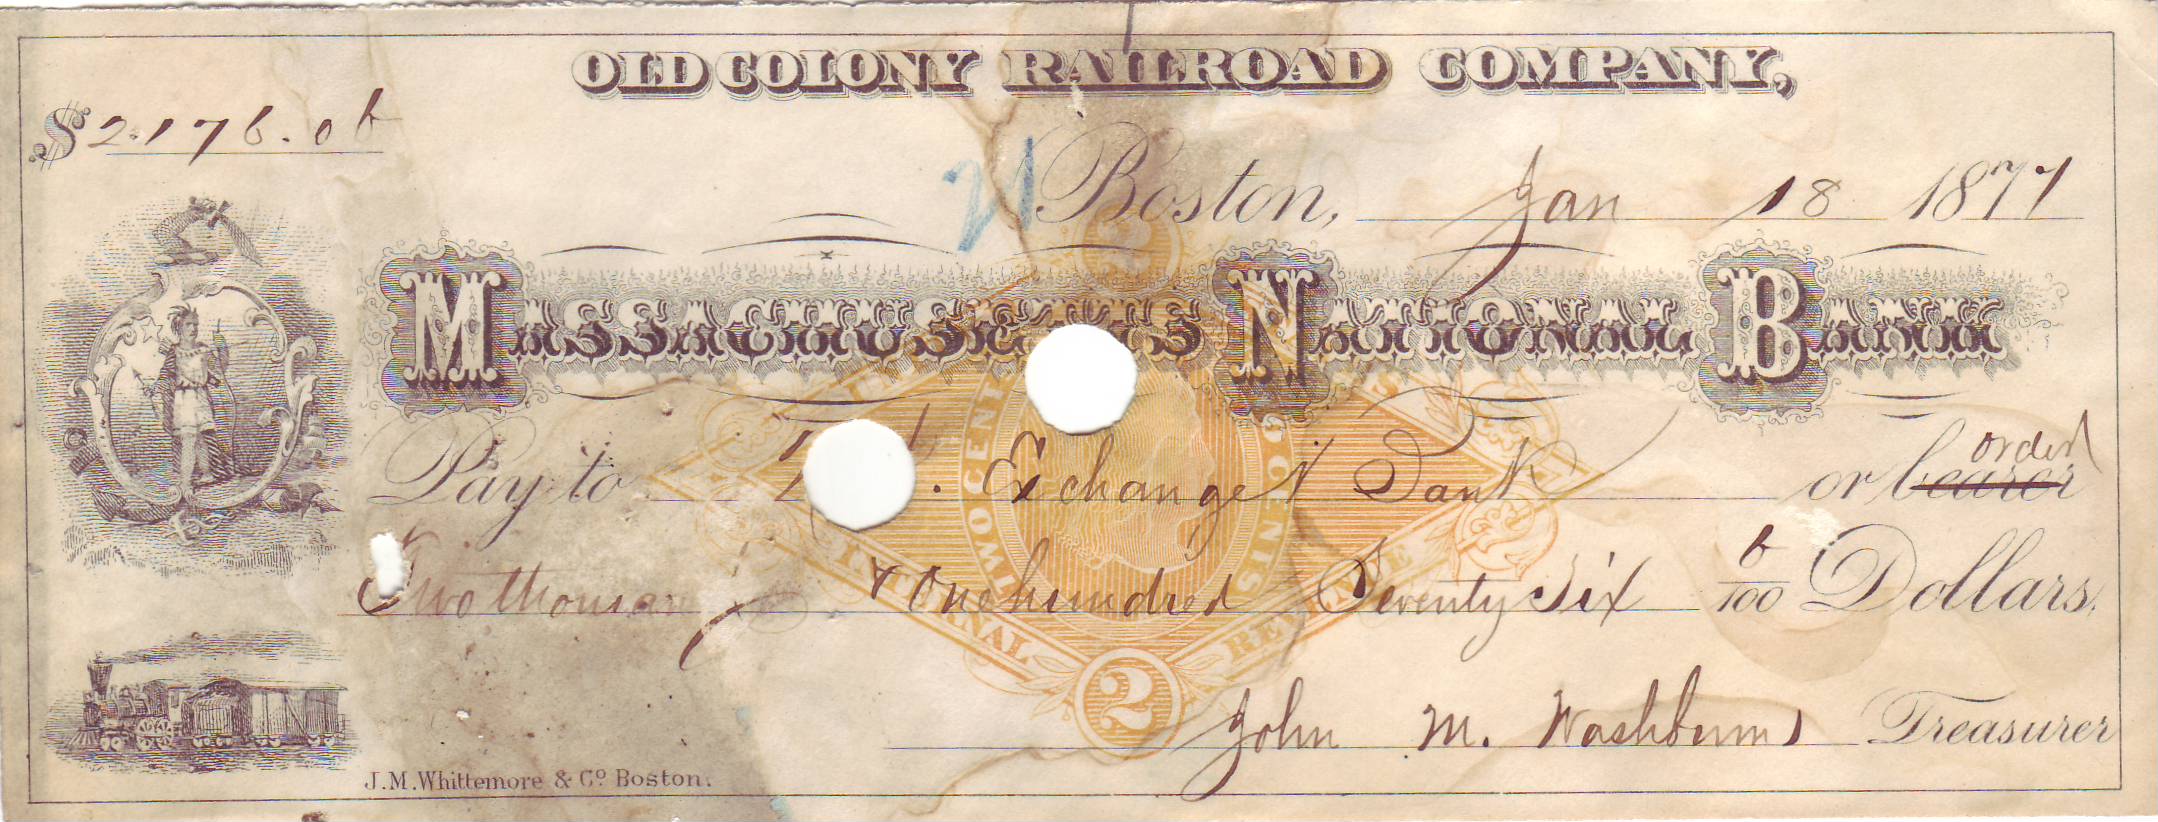 OLD COLONY RAILROAD COMPANY,
$2.176.06
21 Boston, Jan 18 1877
MASSACHUSETTS NATIONAL BANK
Pay to Exchange Bank or bearer order
Two thousand & One hundred Seventy Six 6/100 Dollars.
TWO CENTS
INTERNAL REVENUE
2
2
John M. Washburn Treasurer
J.M. Whittemore & Co. Boston.